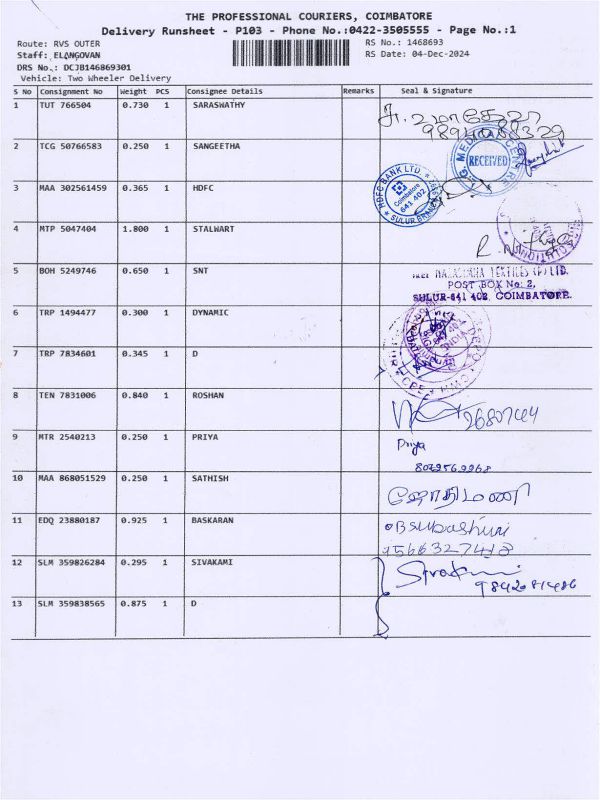 THE PROFESSIONAL COURIERS, COIMBATORE
Delivery Runsheet - P103 - Phone No.:0422-3505555 - Page No.:1
Route: RVS OUTER
RS No.: 1468693
Staff: ELANGOVAN
RS Date: 04-Dec-2024
DRS No.: DCJB146869301
Vehicle: Two Wheeler Delivery
S No Consignment No Weight PCS Consignee Details Remarks Seal & Signature
1 TUT 766504 0.730 1 SARASWATHY
2 TCG 50766583 0.250 1 SANGEETHA
RECEIVED
3 MAA 302561459 0.365 1 HDFC
HDFC BANK LTD.
Coimbatore
641 402
SULUR BRANCH
4 MTP 5047404 1.800 1 STALWART
5 BOH 5249746 0.650 1 SNT
TEXTILES (P) LTD.
POST BOX No: 2,
SULUR-641 402, COIMBATORE.
6 TRP 1494477 0.300 1 DYNAMIC
7 TRP 7834601 0.345 1 D
8 TEN 7831006 0.840 1 ROSHAN
9 MTR 2540213 0.250 1 PRIYA Priya
10 MAA 868051529 0.250 1 SATHISH ஜோதிமணி
11 EDQ 23880187 0.925 1 BASKARAN
9566327418
12 SLM 359826284 0.295 1 SIVAKAMI
13 SLM 359838565 0.875 1 D